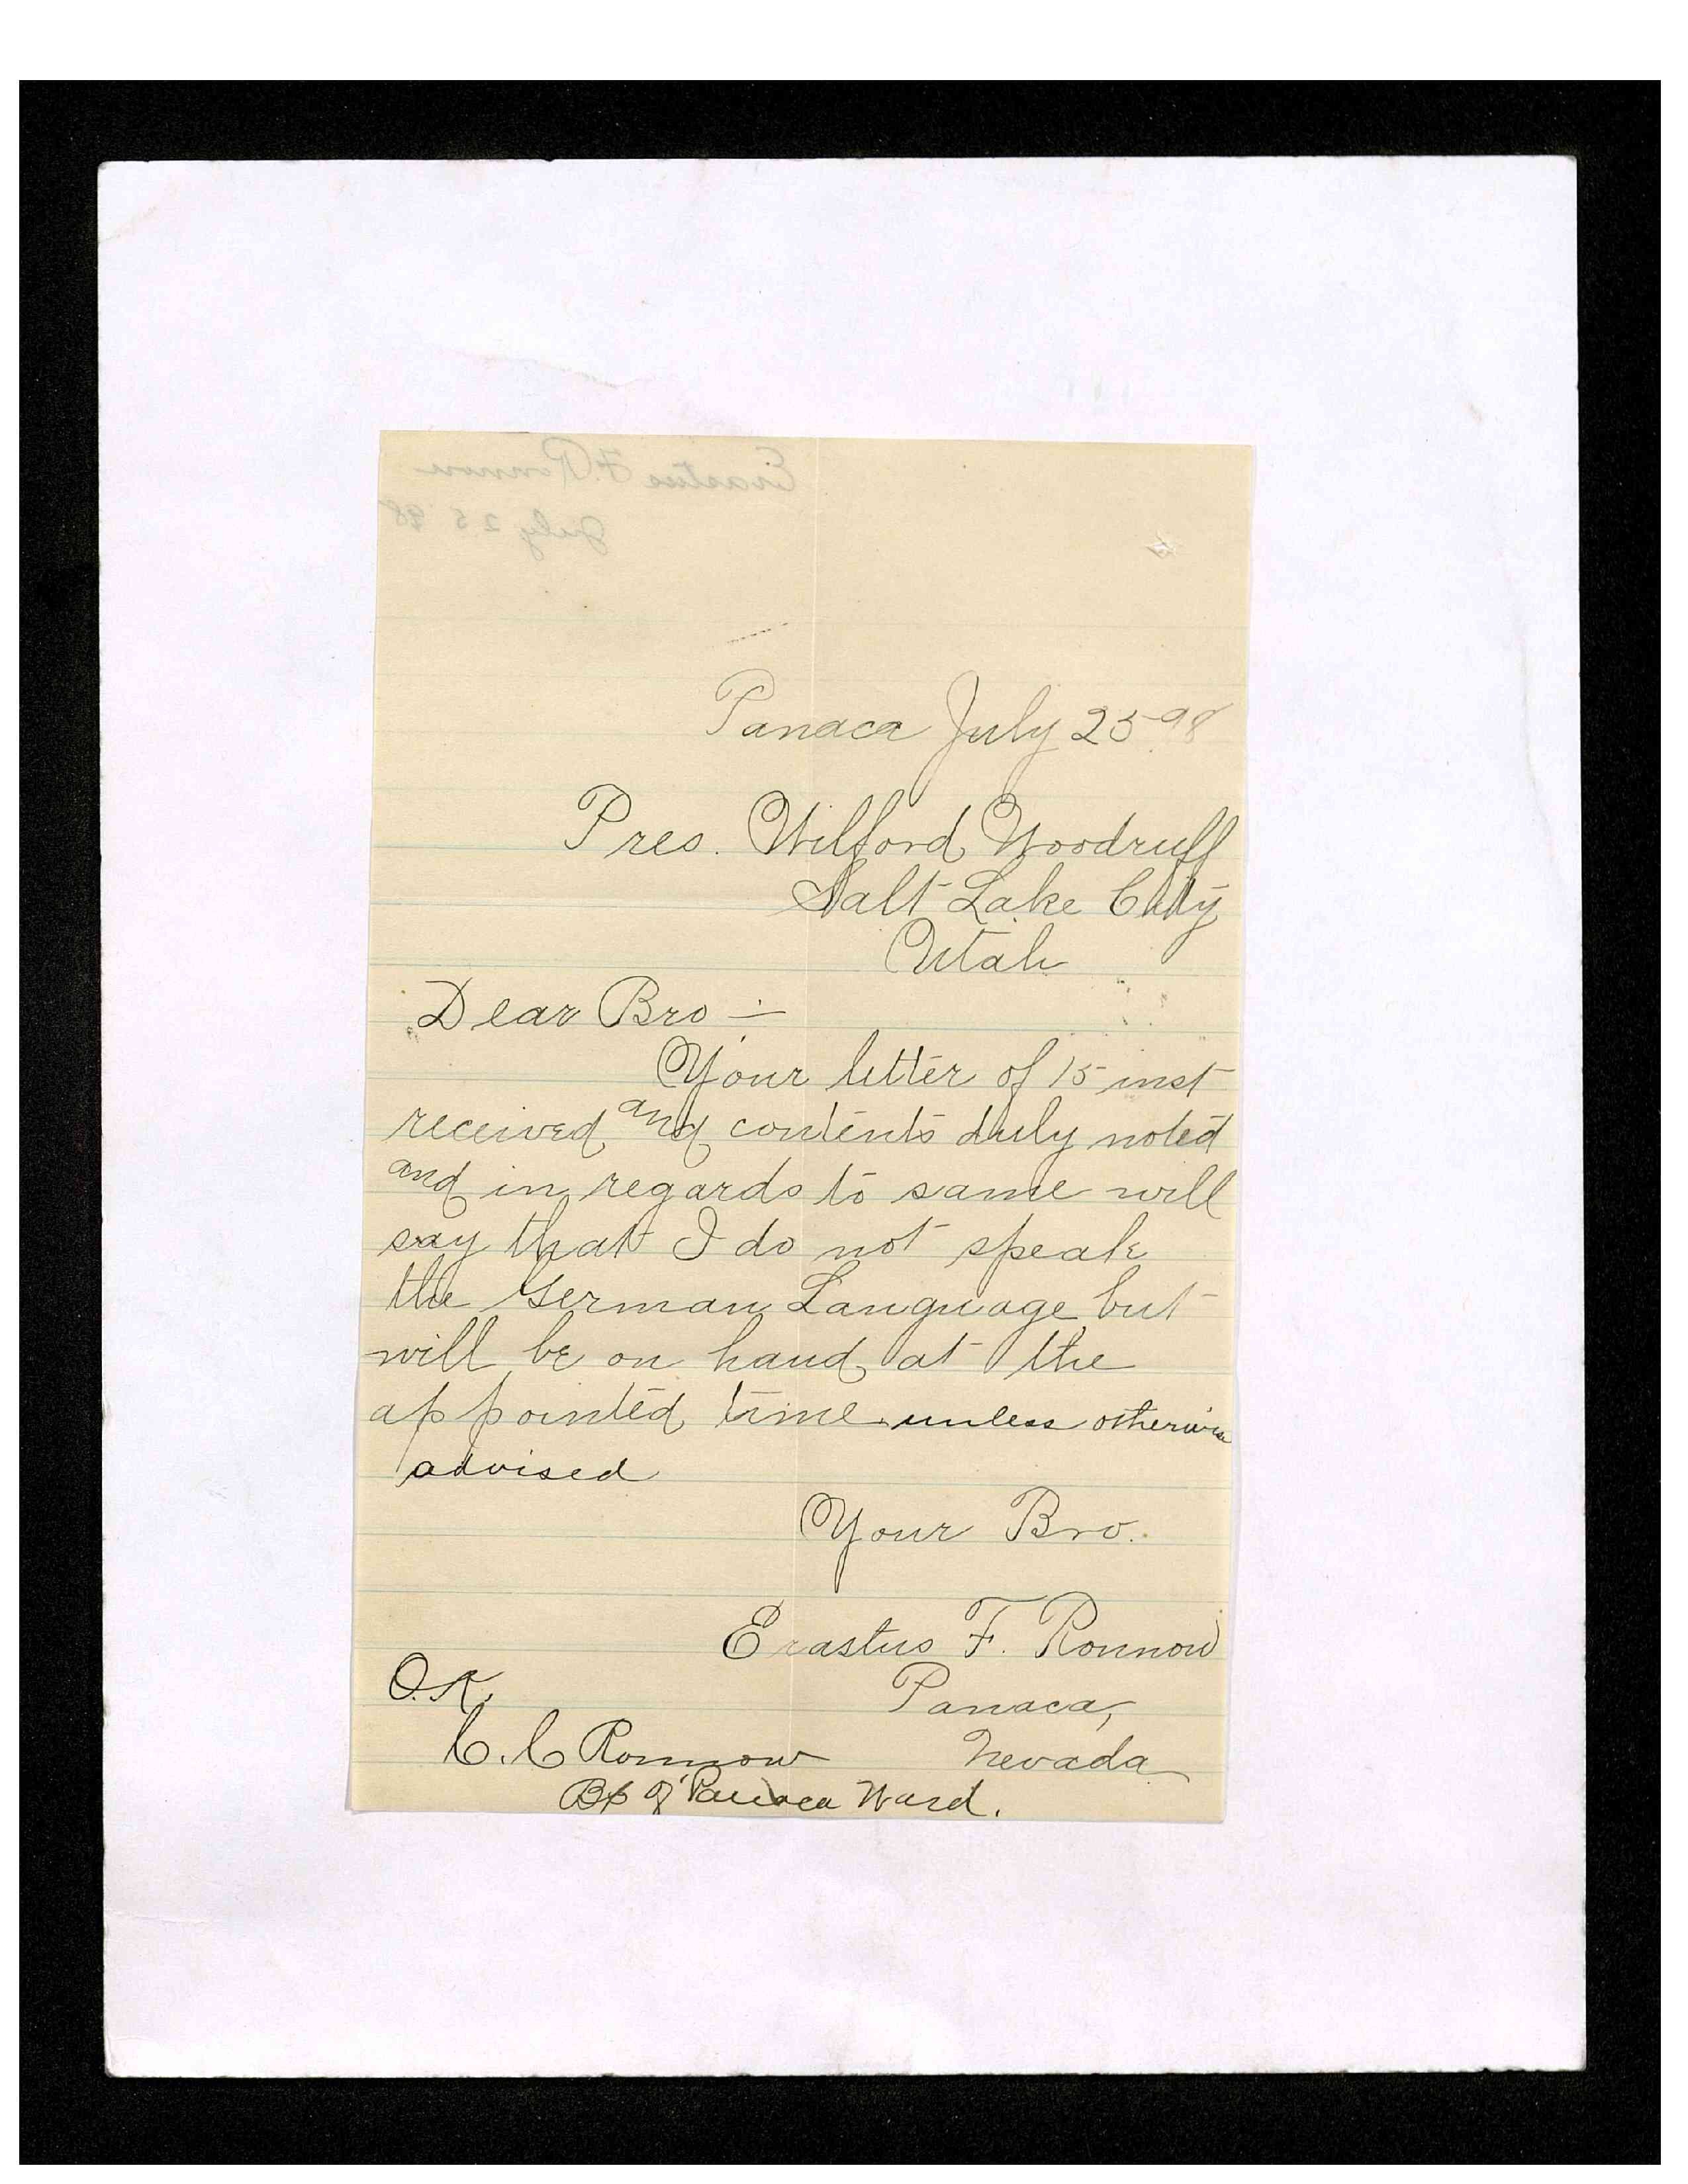 Erastus F. Ronnow
July 25 98
Panaca July 25 98
Pres. Wilford Woodruff
Salt Lake City
Utah
Dear Bro :-
Your letter of 15 inst
received and contents duly noted
and in regards to same will
say that I do not speak
the German Language but
will be on hand at the
appointed time unless otherwise
advised
Your Bro.
Erastus F. Ronnow
O.K. Panaca,
C. C Ronnow Nevada
Bp of Panaca Ward.